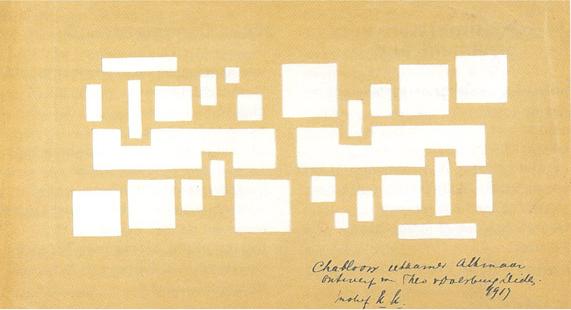 Chabloon eetkamer Alkmaar
Ontwerp v. Theo v Doesburg Leiden.
motief k k. 1917